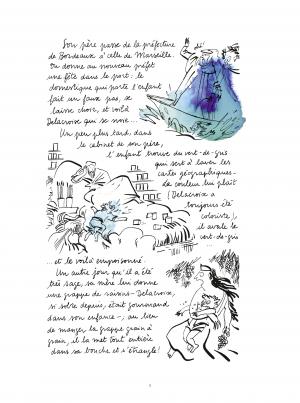 Son père passe de la préfecture
de Bordeaux à celle de Marseille.
On donne au nouveau préfet
une fête dans le port : le
domestique qui porte l'enfant
fait un faux pas, se
laisse choir, et voilà
Delacroix qui se noie...
Un peu plus tard, dans
le cabinet de son père,
l'enfant trouve du vert-de-gris
qui sert à laver les
cartes géographiques.
La couleur lui plaît
(Delacroix a
toujours été
coloriste),
il avale le
vert-de-gris
...
...et le voilà empoisonné.
Un autre jour qu'il a été
très sage, sa mère lui donne
une grappe de raisins. Delacroix,
si sobre depuis, était gourmand
dans son enfance ; au lieu
de manger la grappe grain à
grain, il la met tout entière
dans sa bouche et s'étrangle !